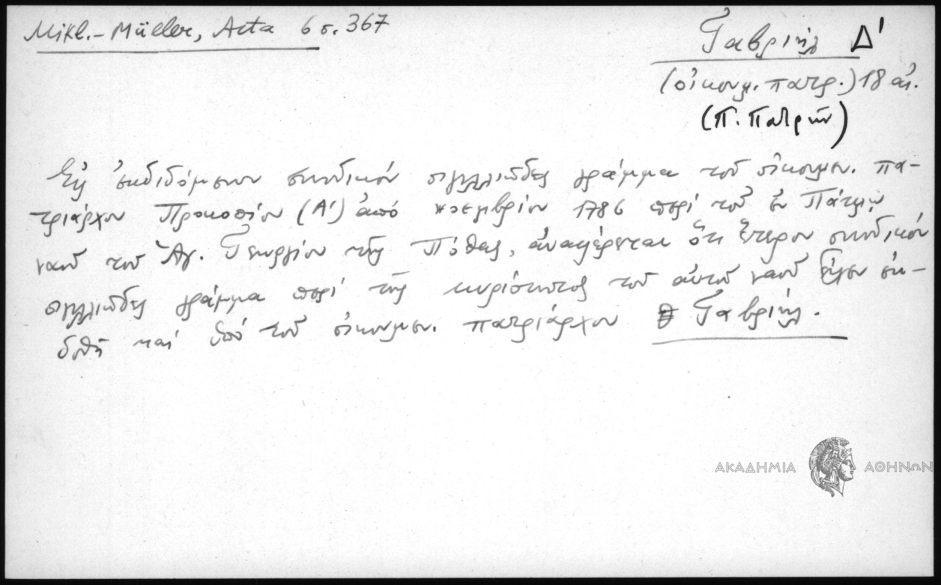 Mikl.-Müller, Acta 6 σ. 367
Γαβριήλ Δ'
(οἰκουμ. πατρ.) 18 αἰ.
(Π. Πατρῶν)
Εἰς ἐκδιδόμενον συνοδικόν σιγιλλιῶδες γράμμα τοῦ οἰκουμεν. πα-
τριάρχου Προκοπίου (Α') ἀπό νοεμβρίου 1786 περί τοῦ ἐν Πάτμῳ
ναοῦ τοῦ Ἁγ. Γεωργίου τῆς Πόθας, ἀναφέρεται ὅτι ἕτερον συνοδικόν
σιγιλλιῶδες γράμμα περί τῆς κυριότητος τοῦ αὐτοῦ ναοῦ εἶχεν ἐκ-
δοθῆ καί ὑπό τοῦ οἰκουμεν. πατριάρχου Γαβριήλ.
ΑΚΑΔΗΜΙΑ ΑΘΗΝΩΝ